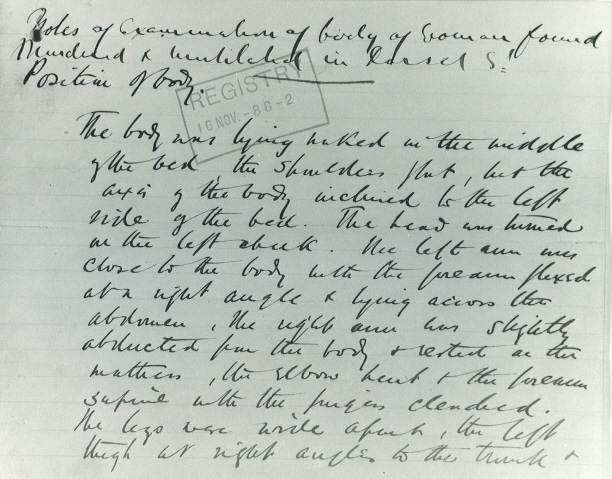 Notes of examination of body of woman found
Murdered & mutilated in Dorset St
Position of body.
REGISTRY
16 NOV.-88-2
The body was lying naked in the middle
of the bed, the shoulders flat, but the
axis of the body inclined to the left
side of the bed. The head was turned
on the left cheek. The left arm was
close to the body with the forearm flexed
at a right angle & lying across the
abdomen, the right arm was slightly
abducted from the body & rested on the
mattress, the elbow bent & the forearm
supine with the fingers clenched.
The legs were wide apart, the left
thigh at right angles to the trunk &